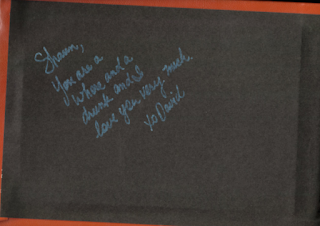 Shawn,
You are a
whore and a
drunk and I
love you very much.
xo David